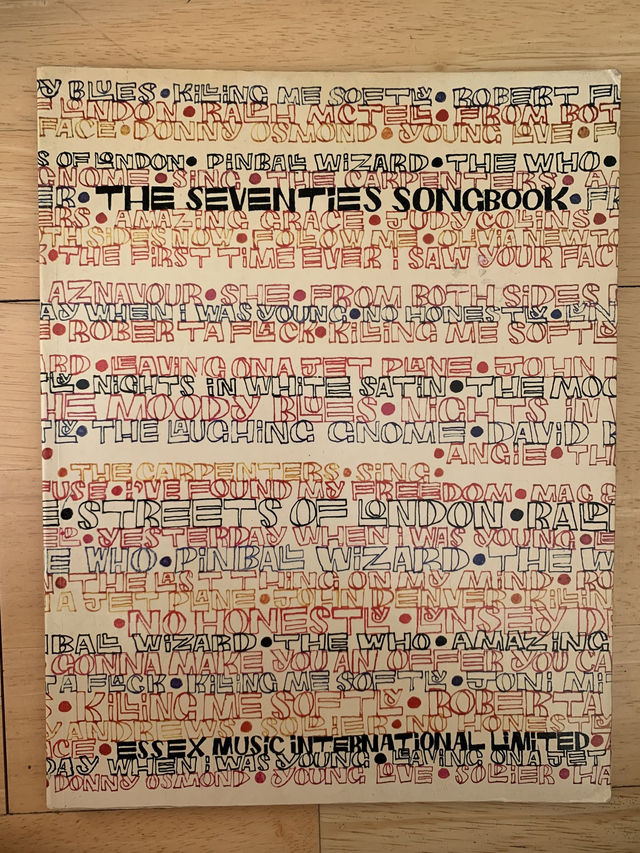 Y BLUES • KILLING ME SOFTLY • ROBERT FL
F LONDON • RALPH MCTELL • FROM BOT
FACE • DONNY OSMOND • YOUNG LOVE • F
S OF LONDON • PINBALL WIZARD • THE WHO •
GNOME • SING • THE CARPENTERS • AM
ER • THE SEVENTIES SONGBOOK • FR
ERS • AMAZING GRACE • JUDY COLLINS •
TH SIDES NOW • FOLLOW ME • OLIVIA NEWTO
• THE FIRST TIME EVER I SAW YOUR FAC
AZNAVOUR • SHE • FROM BOTH SIDES
AY WHEN I WAS YOUNG • NO HONESTLY • LYN
• ROBERTA FLACK • KILLING ME SOFTLY
ARD • LEAVING ON A JET PLANE • JOHN
TLY • NIGHTS IN WHITE SATIN • THE MOO
HE MOODY BLUES • NIGHTS IN W
TLY • THE LAUGHING GNOME • DAVID B
• ANGIE • TH
• THE CARPENTERS • SING •
FUSE • I'VE FOUND MY FREEDOM • MAC &
E • STREETS OF LONDON • RALP
• YESTERDAY WHEN I WAS YOUNG •
E WHO • PINBALL WIZARD • THE W
THE LAST THING ON MY MIND • RO
A JET PLANE • JOHN DENVER • KILLING
• NO HONESTLY LYNSEY D
NBALL WIZARD • THE WHO • AMAZING
GONNA MAKE YOU AN OFFER YOU CA
TA FLACK • KILLING ME SOFTLY • JONI MIT
• KILLING ME SOFTLY • ROBERTA
ANDREWS • SOLDIER • NO HONESTLY
CE • ESSEX MUSIC INTERNATIONAL LIMITED
DAY WHEN I WAS YOUNG • LEAVING ON A JET
DONNY OSMOND • YOUNG LOVE • SOLDIER • HA